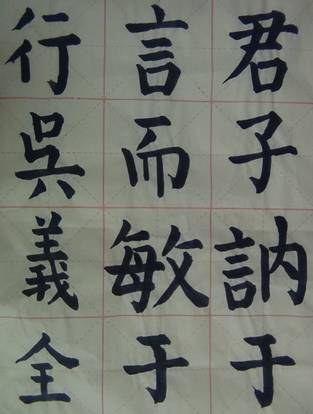 君子訥于
言而敏于
行吳義全